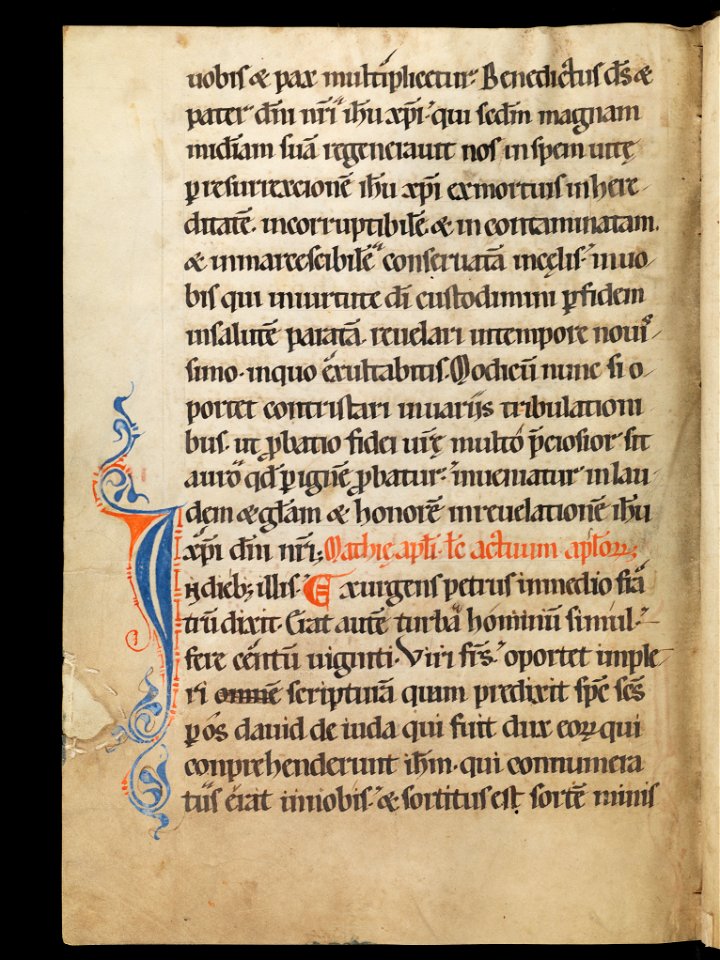 uobis & pax multiplicetur. Benedictus ds̄ &
pater dn̄i nr̄i ih̄u xp̄i. qui sedm̄ magnam
mīdiam suā regenerauit nos in spem uitę
ꝑ resurrexcionē ih̄u xp̄i ex mortuis in here-
ditatē. incorruptibilē. & incontaminatam.
& inmarcescibilē conseruatā in cęlis. in uo-
bis qui in uirtute dī custodimini ꝑ fidem
in salutē paratā. reuelari in tempore nouis-
simo. in quo exultabitis. Modicū nunc si o-
portet contristari in uariis tribulationi-
bus. ut ꝓbatio fidei ur̄ę multo p̄ciosior sit
auro qd̄ ꝑ ignē ꝓbatur. inueniatur in lau-
dem & gl̄am & honorē in reuelationē ih̄u
xp̄i dn̄i nr̄i; Mathię apl̄i. lc̄ actuum aplōꝝ;
In dieb; illis. Exurgens petrus in medio fr̄a-
trū dixit. Erat autē turba hominū simul.
fere centū uiginti. Viri fr̄s. oportet imple-
ri omnē scripturā quam predixit sp̄c sc̄s
ꝑ os dauid de iuda qui fuit dux eoꝝ qui
conprehenderunt ih̄m. qui connumera-
tus erat in nobis. & sortitus est sortē minis